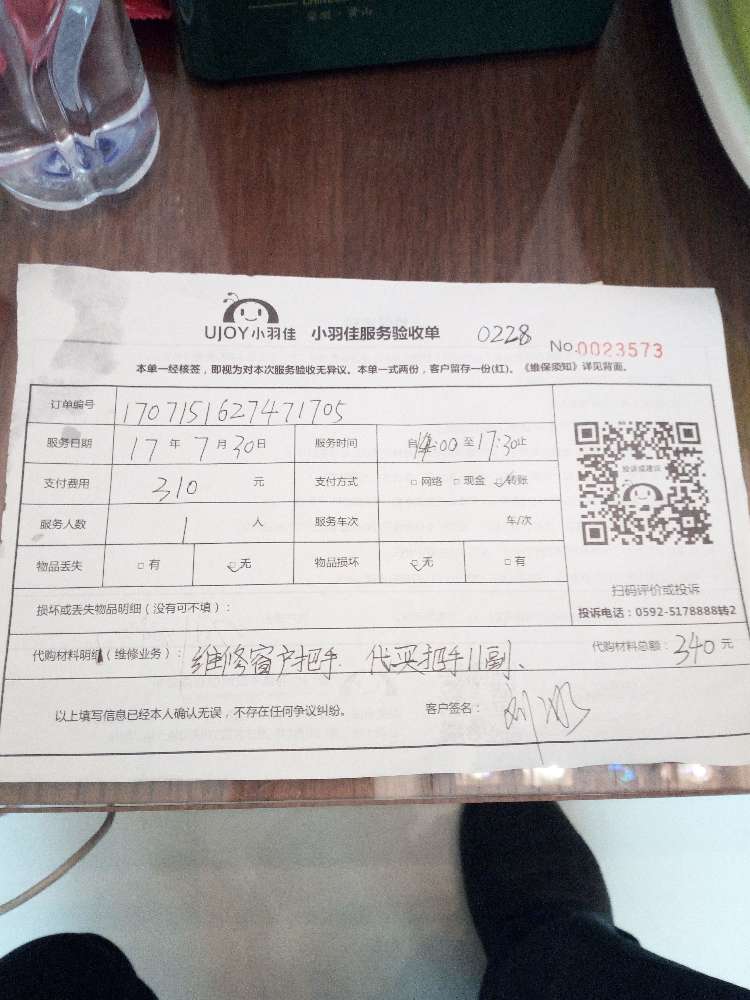 黄顺·黄山
UJOY小羽佳 小羽佳服务验收单 0228 No.0023573
本单一经核签，即视为对本次服务验收无异议。本单一式两份，客户留存一份(红)。《维保须知》详见背面。
订单编号 1707151627471705
服务日期 17年7月30日 服务时间 自14:00至17:30止
支付费用 310 元 支付方式 □网络 □现金 ☑转账
服务人数 1 人 服务车次 车/次
物品丢失 □有 ☑无 物品损坏 ☑无 □有
投诉或建议
扫码评价或投诉
投诉电话：0592-5178888转2
损坏或丢失物品明细（没有可不填）：
代购材料明细（维修业务）：维修窗户把手. 代买把手11副、 代购材料总额：340元
以上填写信息已经本人确认无误，不存在任何争议纠纷。 客户签名：